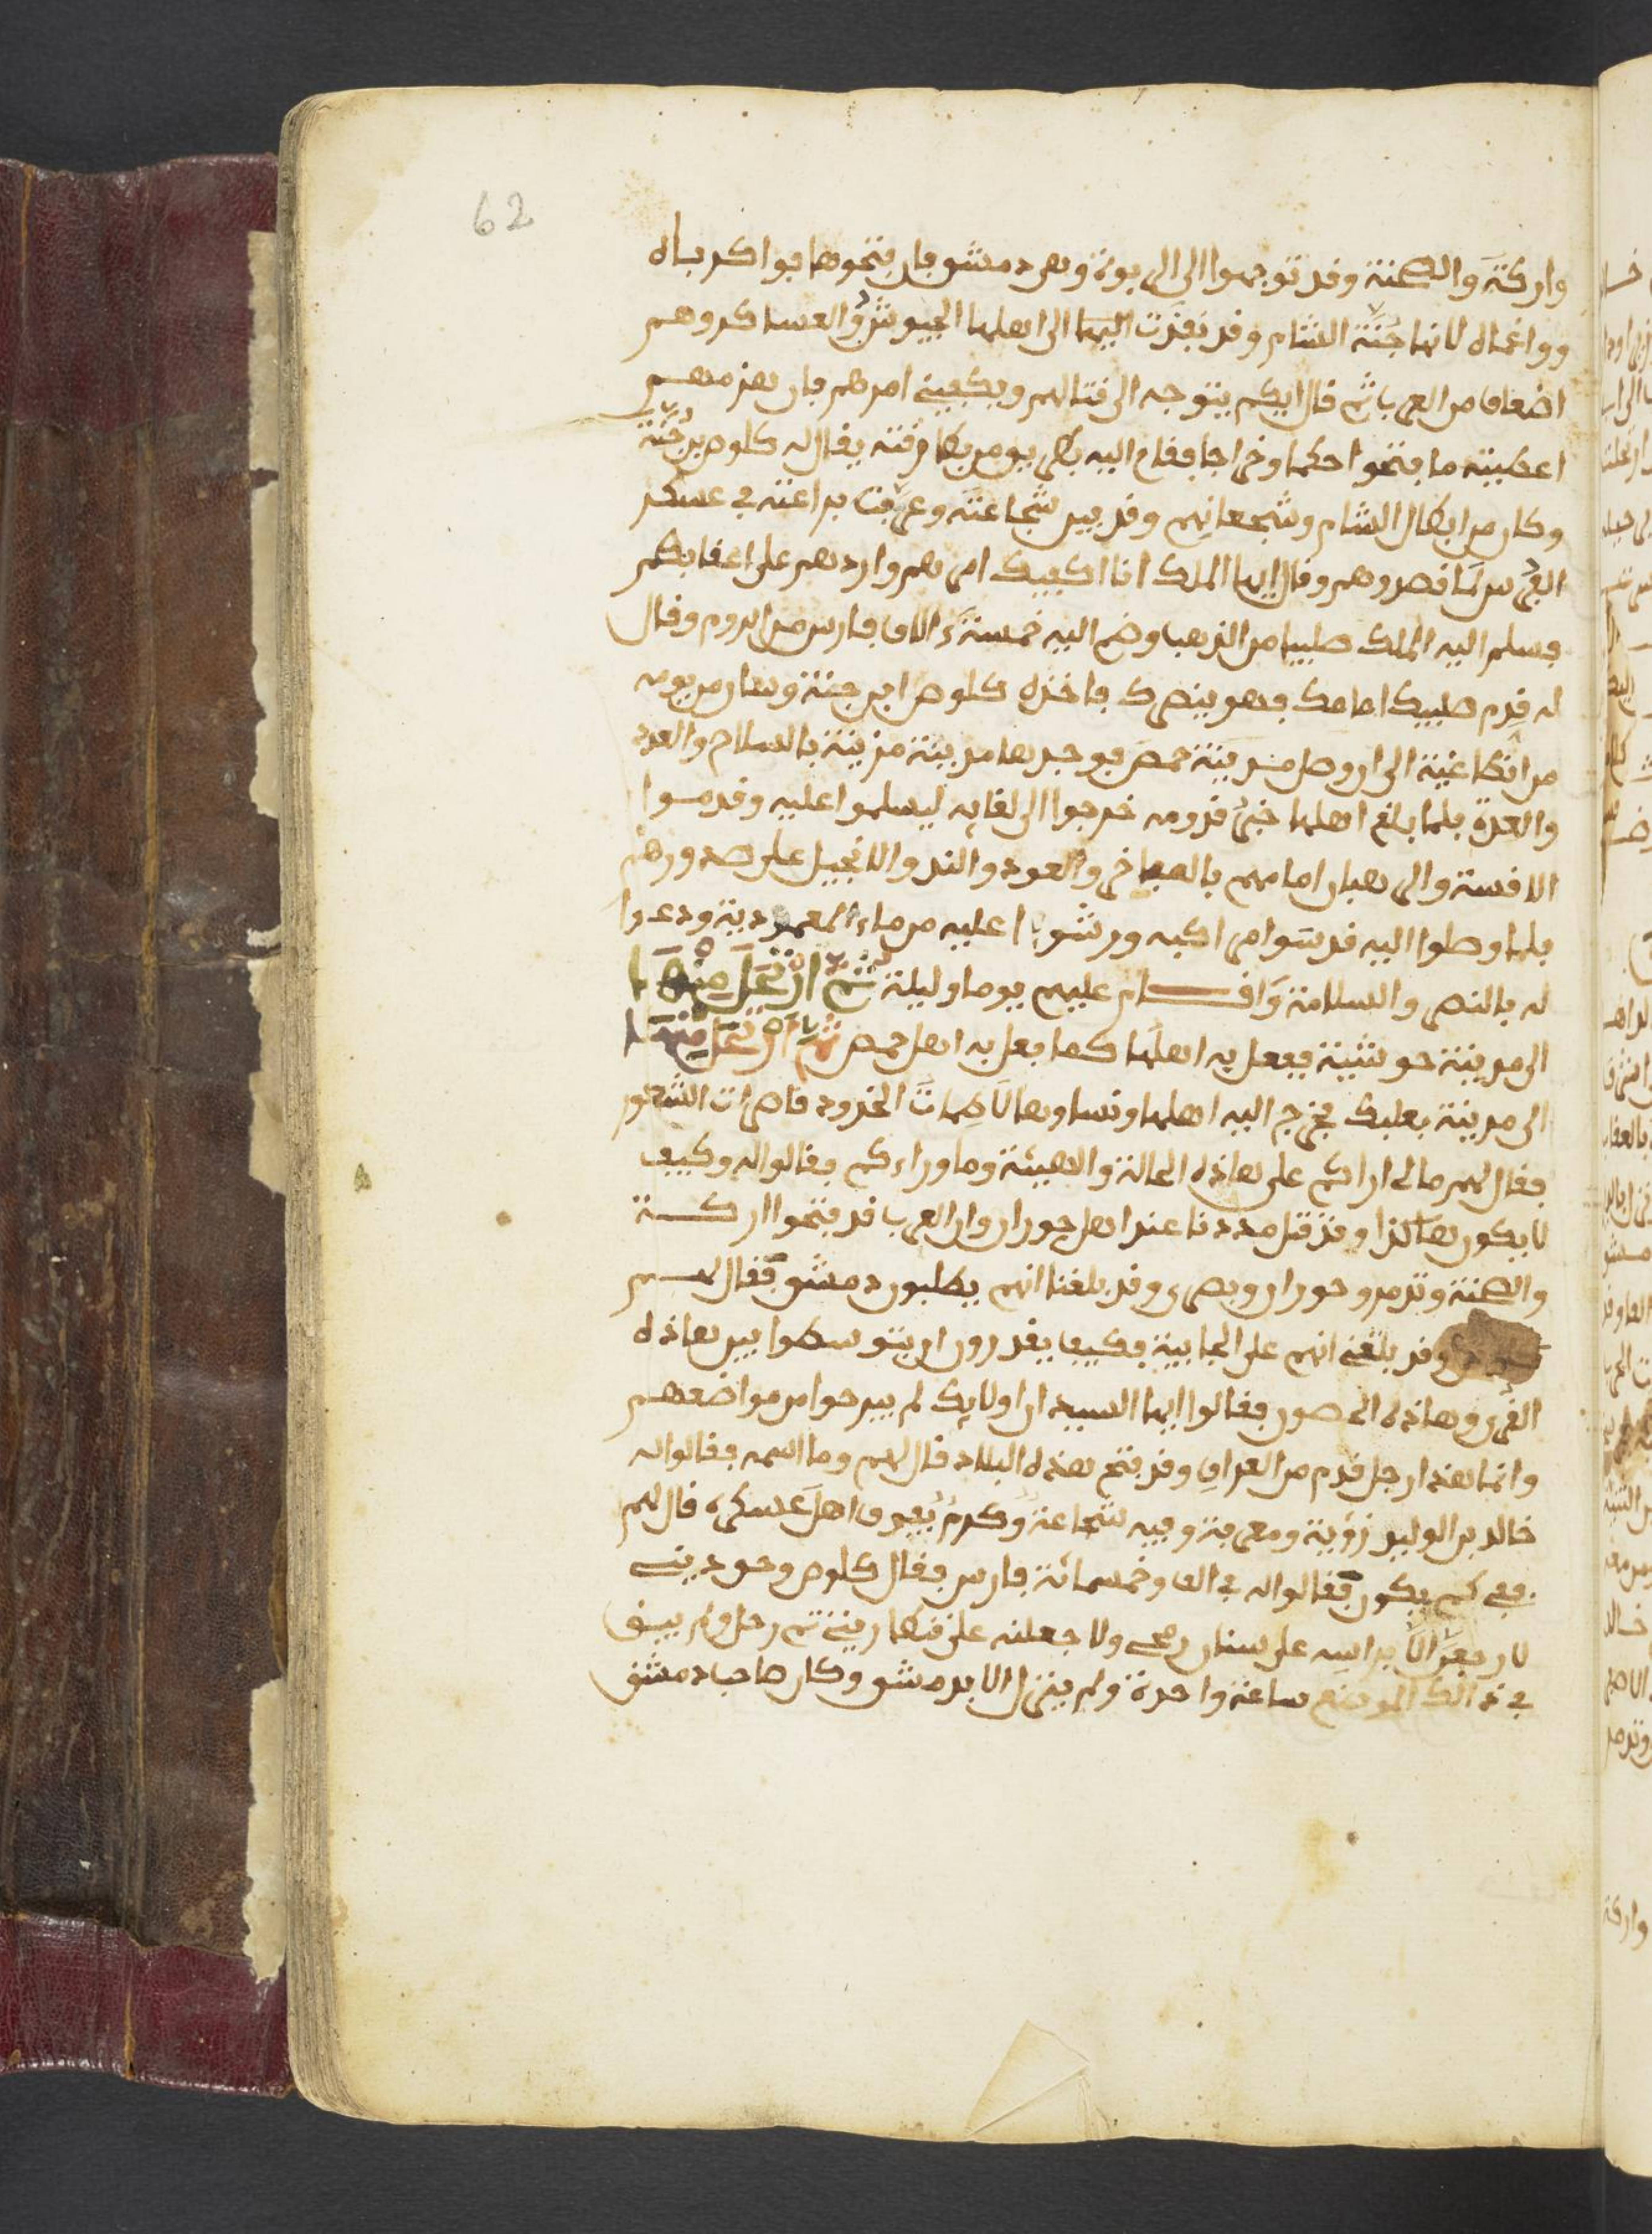 62
واركة والصخنة وقد توجهوا الى الربوة وهي دمشق فان فتحوها فواكرباه
وواغماه لانها جُنَّة الشام وقد نفذت اليها الى اهلها الجيوش والعساكر وهم
اضعاف من العرب ثم قال ايكم يتوجه الى قتالهم ويكفيني امرهم فان هزمهم
اعطيته ما فتحوا حكما وخراجا فقام اليه بطريق من بطارقته يقال له كلوص بن حُنَّة
وكان من ابطال الشام وشجعانهم وقد بين شجاعته وعرفت براعته في عسكر
الفرس لما قصدوهم وقال ايها الملك انا اكفيك امرهم واردهم على اعقابهم
فسلم اليه الملك صليبا من الذهب وضم اليه خمسة ءالاف فارس من الروم وقال
له قدم صليبك امامك فهو ينصرك فاخذه كلوص ابن حنة وسار من يومه
من انطاغية الى ان وصل مدينة حمص فوجدها مدينة مزينة بالسلاح والعدد
والعدة فلما بلغ اهلها خبر قدومه خرجوا الى لقايه ليسلموا عليه وقدموا
الاقسة والرهبان امامهم بالمباخر والعود والند والانجيل على صدورهم
فلما وصلوا اليه قدسوا مراكبه ورشوا عليه من ماء المعمودية ودعوا
له بالنصر والسلامة واقام عليهم يوما وليلة ثم ارتحل منها
الى مدينة حوشية ففعل به اهلها كما فعل به اهل حمص ثم ارتحل منها
الى مدينة بعلبك فخرج اليه اهلها ونساوها لاطمات الخدود ناصرات الشعور
فقال لهم مالي اراكم على هاذه الحالة والهيئة وما وراءكم فقالوا له وكيف
لا يكون هاكذا وقد قتل مددنا عند اهل حوران وان العرب قد فتحوا اركة
والصخنة وتدمر وحوران وبصرى وقد بلغنا انهم يطلبون دمشق فقال لهم
كلوص وقد بلغني انهم على الجابية فكيف يقدرون ان يتوسطوا بين هاذه
القرى وهاذه الحصون فقالوا ايها السيد ان اولايك لم يبرحوا من مواضعهم
وانما هذا رجل قدم من العراق وقد فتح هذه البلاد قال لهم وما اسمه فقالوا له
خالد بن الوليد ذو رية ومعرفة وفيه شجاعة وكرم يفوق اهل عسكره قال لهم
ففي كم يكون فقالوا له في الف وخمسمائة فارس فقال كلوص وحق ديني
لا رجعن الا براسه على سنان رمحي ولا جعلنه على قنطاريتي ثم رحل ولم يبق
في ذالك الموضع ساعة واحدة ولم ينزل الا بدمشق وكان صاحب دمشق